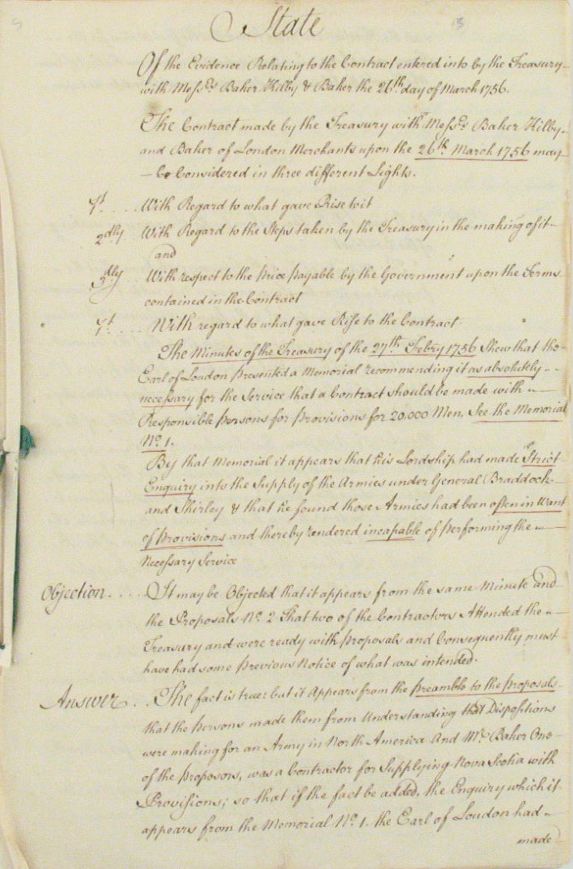 State
Of the Evidence Relating to the Contract entered into by the Treasury
with Messrs. Baker Kilby & Baker the 26th day of March 1756.
The Contract made by the Treasury with Messrs. Baker Kilby
and Baker of London Merchants upon the 26th March 1756 may
be Considered in three different Lights.
1st .... With Regard to what gave Rise to it
2dly With Regard to the Steps taken by the Treasury in the making of it
and
3dly With respect to the Price payable by the Government upon the Terms
contained in the Contract
1st ... With regard to what gave Rise to the Contract
The Minutes of the Treasury of the 27th Febry 1756 Shew that the
Earl of Loudon presented a Memorial recommending it as absolutely
necessary for the Service that a Contract should be made with
Responsible Persons for Provisions for 20,000 Men, See the Memorial
No. 1.
By that Memorial it appears that his Lordship had made Strict
Enquiry into the Supply of the Armies under General Braddock
and Shirley & that he found those Armies had been often in Want
of Provisions and thereby rendered incapable of performing the
Necessary Service
Objection .... It may be Objected that it appears from the same Minute and
the Proposals No. 2 That two of the Contractors Attended the
Treasury and were ready with Proposals and Consequently must
have had some Previous Notice of what was intended.
Answer .. The fact is true: but it Appears from the Preamble to the Proposals
that the Persons made them from Understanding that Dispositions
were making for an Army in North America And Mr. Baker One
of the proposors, was a Contractor for Supplying Nova Scotia with
Provisions; so that if the fact be added, the Enquiry which it
appears from the Memorial No. 1. the Earl of Loudon had
made